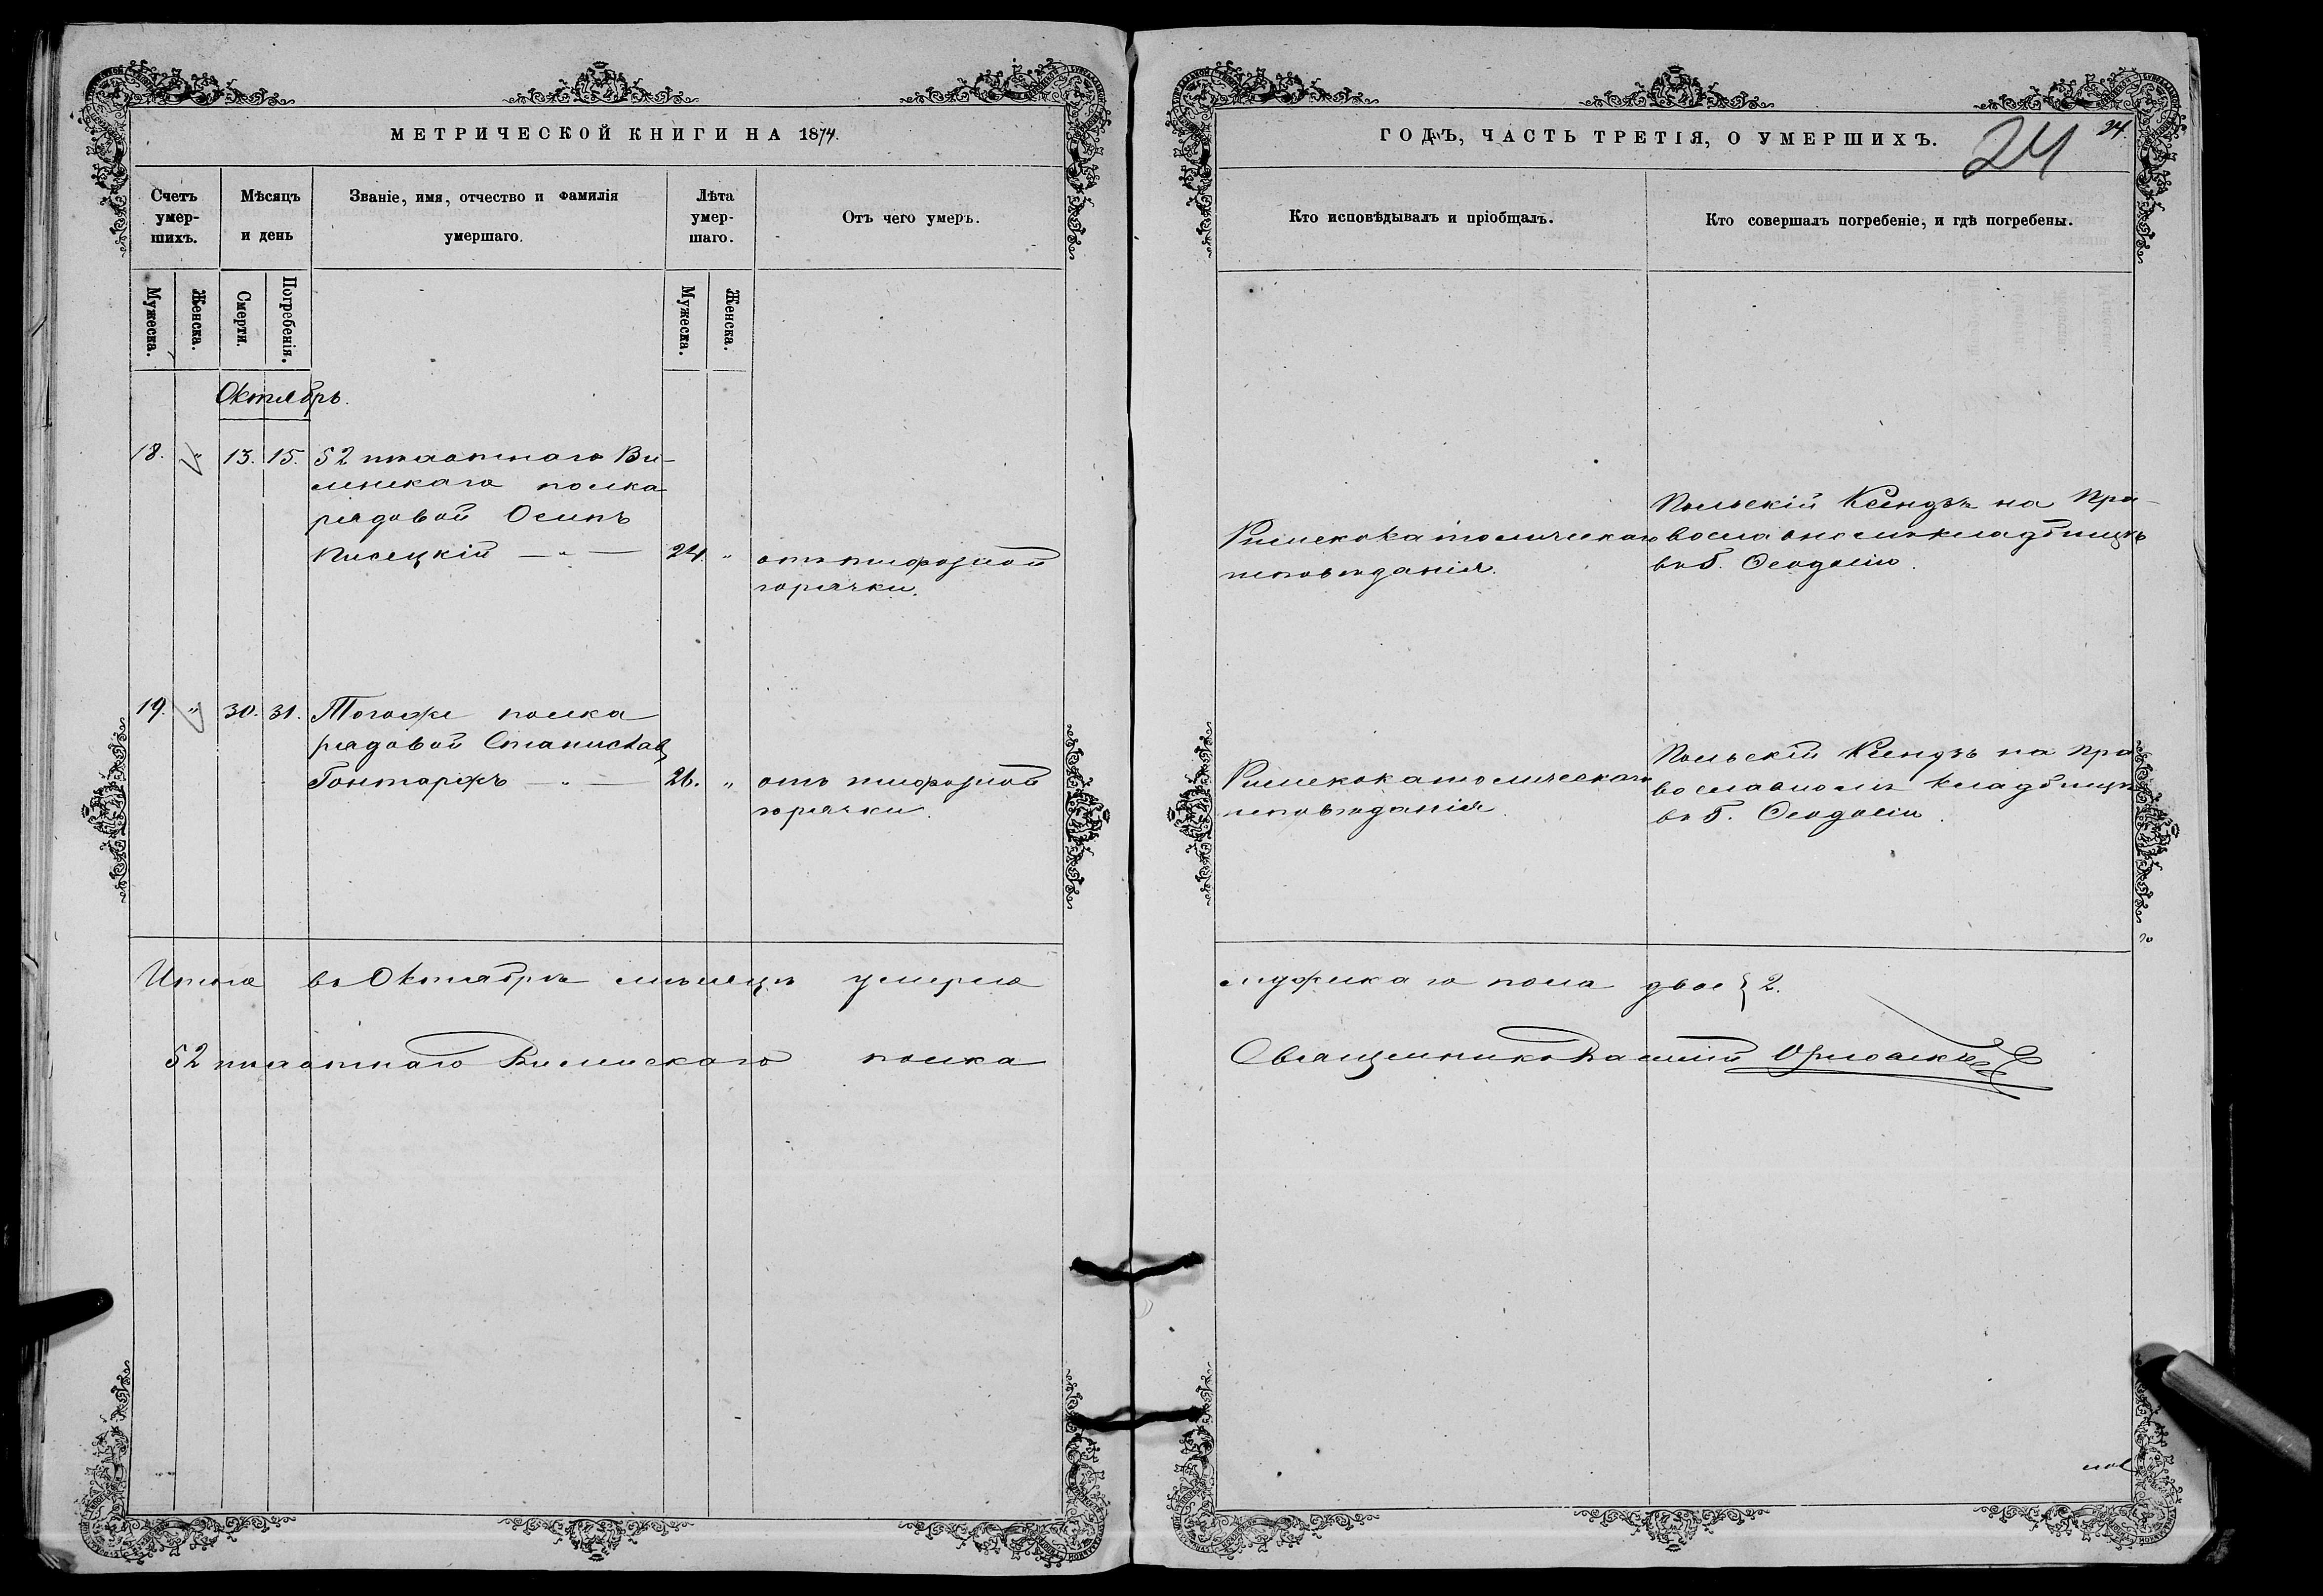 МЕТРИЧЕСКОЙ КНИГИ НА 1874.
Счетъ умер-шихъ.
Мѣсяцъ и день
Званіе, имя, отчество и фамилія умершаго.
Лѣта умер-шаго.
Отъ чего умеръ.
Мужеска.
Женска.
Смерти.
Погребенія.
Мужеска.
Женска.
Октябрь.
18. " 13. 15. 52 пѣхотнаго Ви-
ленскаго полка
рядовой Осипъ
Кисецкій — " — 24. " отъ тифозной
горячки.
19. " 30. 31. Тогоже полка
рядовой Станиславъ
Гонтаржъ — " — 26. " отъ тифозной
горячки.
Итого въ Октябрѣ мѣсяцѣ умерло
52 пѣхотнаго Виленскаго полка
ГОДЪ, ЧАСТЬ ТРЕТІЯ, О УМЕРШИХЪ.
24
24.
Кто исповѣдывалъ и пріобщалъ.
Кто совершалъ погребеніе, и гдѣ погребены.
Римскокатолическаго
исповѣданія.
Польскій Ксендзъ на Пра-
вославномъ кладбищѣ
въ г. Ѳеодосіи.
Римскокатолическаго
исповѣданія.
Польскій Ксендзъ на Пра
вославномъ кладбищѣ
въ г. Ѳеодосіи.
мужскаго пола двое } 2.
Священникъ Василій